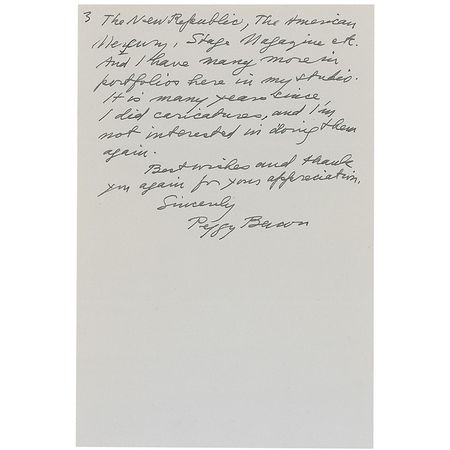 3 The New Republic, The American
Mercury, Stage Magazine etc.
And I have many more in
portfolios here in my studio.
It is many years since
I did caricatures, and I'm
not interested in doing them
again.
Best wishes and thank
you again for your appreciation.
Sincerely
Peggy Bacon